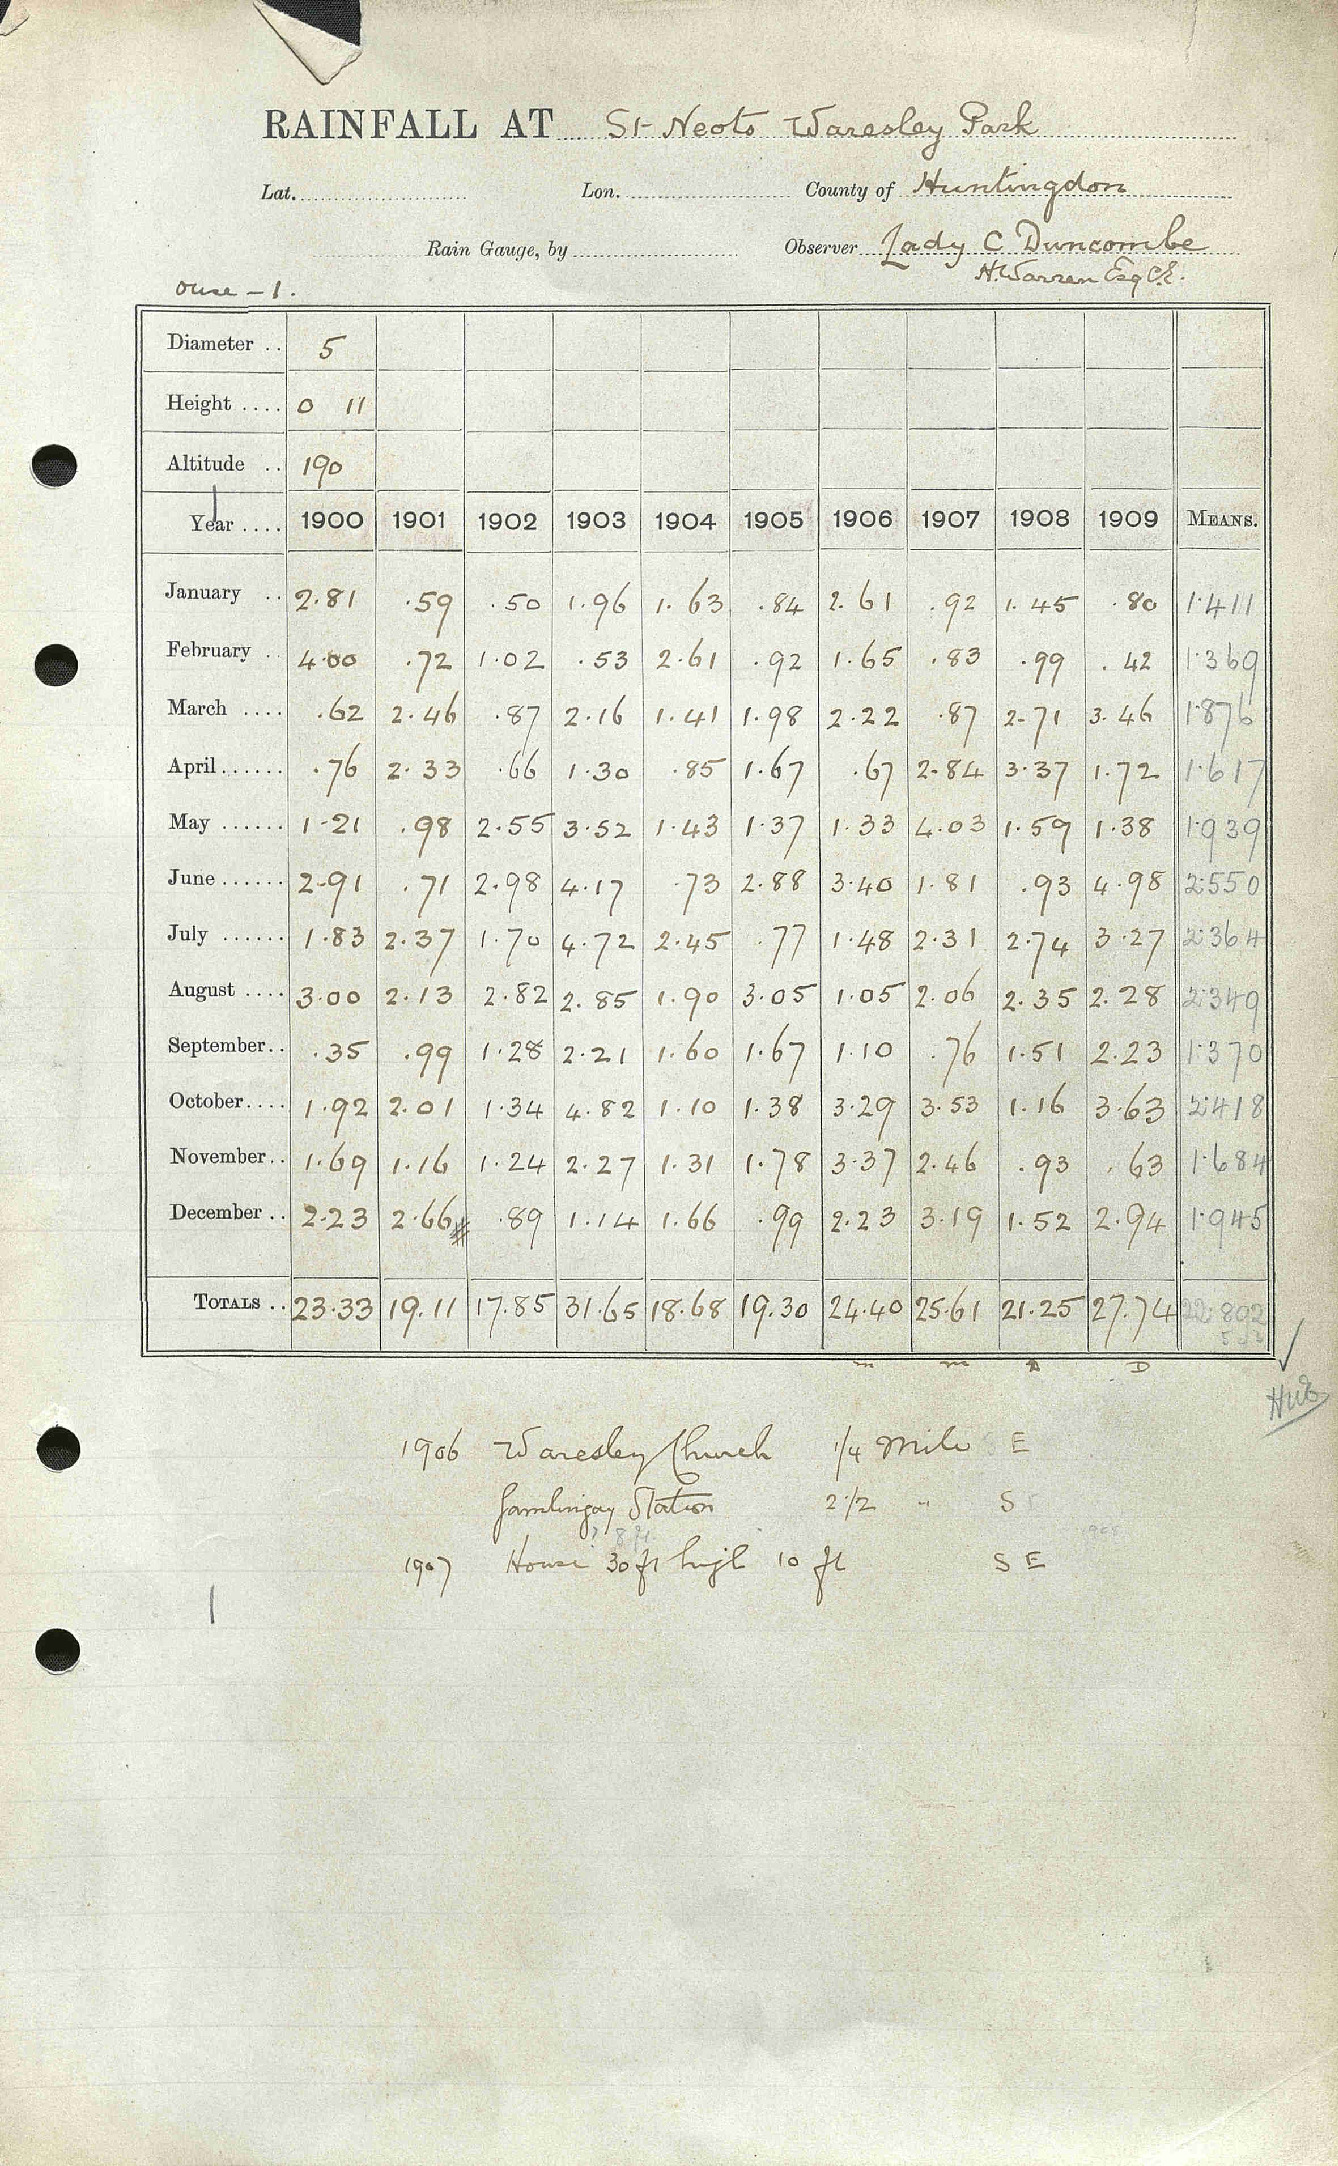 RAINFALL AT St Neots Waresley Park
Lat. Lon. County of Huntingdon
Rain Gauge, by Observer Lady C Duncombe
H. Warren Esq C.E.
Ouse - 1.
Diameter .. 5
Height .... 0 11
Altitude .. 190
Year .... 1900 1901 1902 1903 1904 1905 1906 1907 1908 1909 MEANS.
January .. 2.81 .59 .50 1.96 1.63 .84 2.61 .92 1.45 .80 1.411
February .. 4.00 .72 1.02 .53 2.61 .92 1.65 .83 .99 .42 1.369
March .... .62 2.46 .87 2.16 1.41 1.98 2.22 .87 2.71 3.46 1.876
April ...... .76 2.33 .66 1.30 .85 1.67 .67 2.84 3.37 1.72 1.617
May ...... 1.21 .98 2.55 3.52 1.43 1.37 1.33 4.03 1.59 1.38 1.939
June ...... 2.91 .71 2.98 4.17 .73 2.88 3.40 1.81 .93 4.98 2.550
July ...... 1.83 2.37 1.70 4.72 2.45 .77 1.48 2.31 2.74 3.27 2.364
August .... 3.00 2.13 2.82 2.85 1.90 3.05 1.05 2.06 2.35 2.28 2.349
September .. .35 .99 1.28 2.21 1.60 1.67 1.10 .76 1.51 2.23 1.370
October .... 1.92 2.01 1.34 4.82 1.10 1.38 3.29 3.53 1.16 3.63 2.418
November .. 1.69 1.16 1.24 2.27 1.31 1.78 3.37 2.46 .93 .63 1.684
December .. 2.23 2.66 .89 1.14 1.66 .99 2.23 3.19 1.52 2.94 1.945
TOTALS .. 23.33 19.11 17.85 31.65 18.68 19.30 24.40 25.61 21.25 27.74 22.892
m m A D
1906 Waresley Church 1/4 Mile E
Gamlingay Station 2 1/2 " S
? 8 ft.
1907 House 30 ft high 10 ft S E